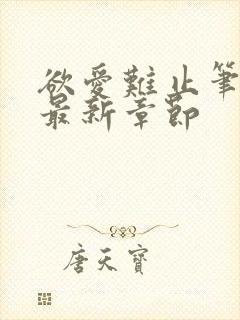 欲爱難止笔
最新章節
唐天寶